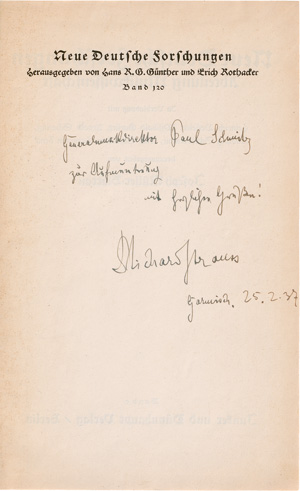 Neue Deutsche Forschungen
Herausgegeben von Hans R. G. Günther und Erich Rothacker
Band 120
Generalmusikdirektor Paul Schmitz
zur Aufmunterung
mit herzlichen Grüßen!
Richard Strauss
Garmisch, 25.2.37